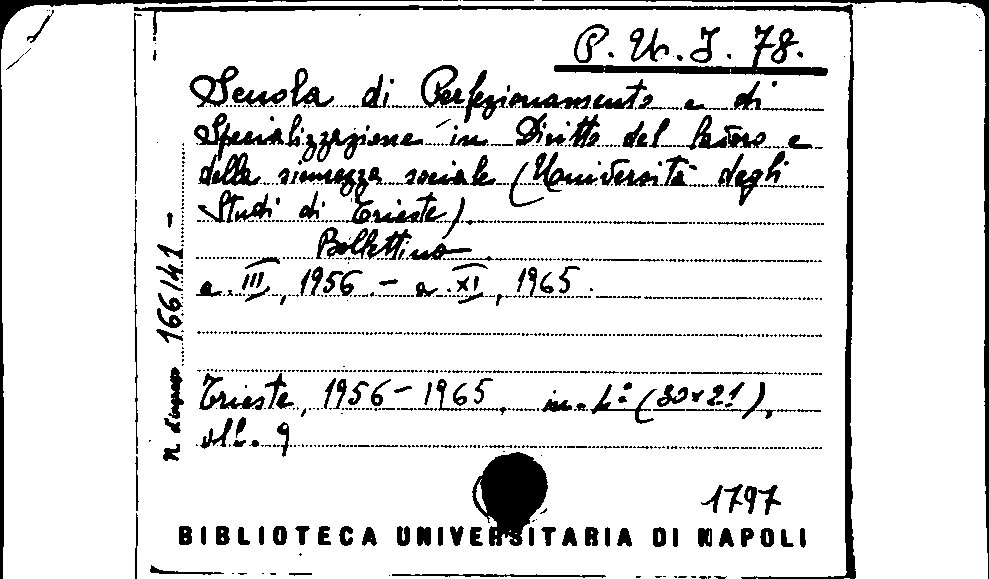 P. Un. I. 78.
Scuola di Perfezionamento e di
Specializzazione in Diritto del lavoro e
della sicurezza sociale (Università degli
Studi di Trieste).
Bollettino.
a. III, 1956 - a. XI, 1965.
Trieste, 1956-1965. in-4° (30x21),
voll. 9
N. d'ingresso 166141 -
1797
BIBLIOTECA UNIVERSITARIA DI NAPOLI